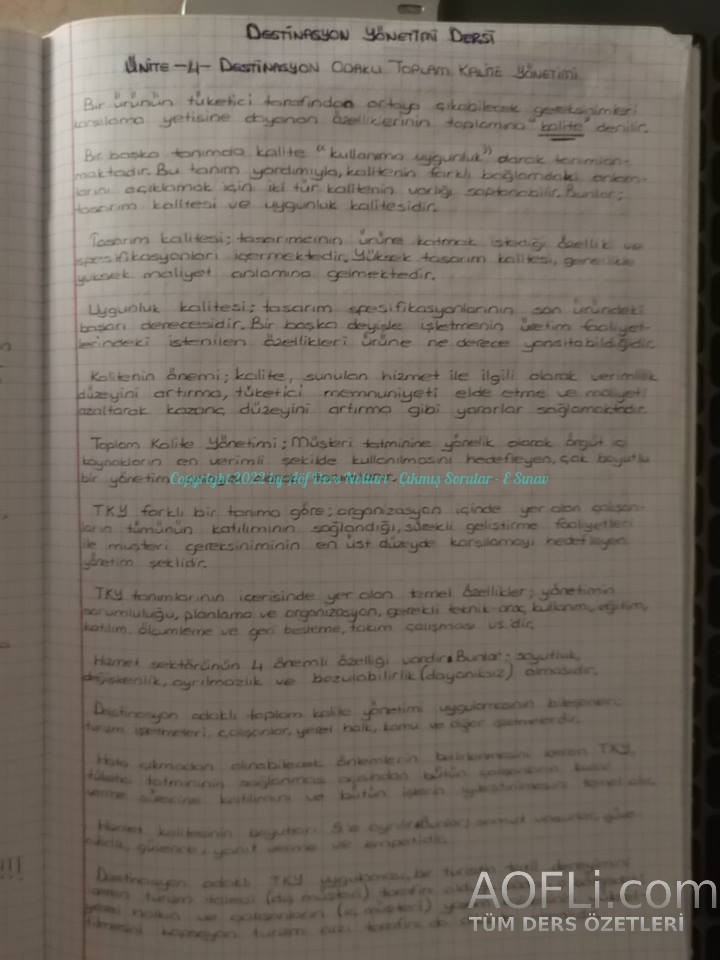 DESTİNASYON YÖNETİMİ DERSİ
ÜNİTE-4- DESTİNASYON ODAKLI TOPLAM KALİTE YÖNETİMİ
Bir ürünün tüketici tarafından ortaya çıkabilecek gereksinimleri
karşılama yetisine dayanan özelliklerinin toplamına "kalite" denilir.
Bir başka tanımda kalite "kullanıma uygunluk" olarak tanımlan-
maktadır. Bu tanım yardımıyla, kalitenin farklı bağlamdaki anlam-
larını açıklamak için iki tür kalitenin varlığı saptanabilir. Bunlar;
tasarım kalitesi ve uygunluk kalitesidir.
Tasarım kalitesi; tasarımcının ürüne katmak istediği özellik ve
spesifikasyonları içermektedir. Yüksek tasarım kalitesi, genellikle
yüksek maliyet anlamına gelmektedir.
Uygunluk kalitesi; tasarım spesifikasyonlarının son üründeki
başarı derecesidir. Bir başka deyişle işletmenin üretim faaliyet-
lerindeki istenilen özellikleri ürüne ne derece yansıtabildiğidir.
Kalitenin önemi; kalite, sunulan hizmet ile ilgili olarak verimlilik
düzeyini artırma, tüketici memnuniyeti elde etme ve maliyeti
azaltarak kazanç düzeyini artırma gibi yararlar sağlamaktadır.
Toplam Kalite Yönetimi; Müşteri tatminine yönelik olarak örgüt içi
kaynakların en verimli şekilde kullanılmasını hedefleyen, çok boyutlu
bir yönetim
Copyright 2022 by Aöf Ders Notları - Çıkmış Sorular - E Sınav
TKY farklı bir tanıma göre; organizasyon içinde yer alan çalışan-
ların tümünün katılımının sağlandığı, sürekli geliştirme faaliyetleri
ile müşteri gereksiniminin en üst düzeyde karşılamayı hedefleyen
yönetim şeklidir.
TKY tanımlarının içerisinde yer alan temel özellikler; yönetimin
sorumluluğu, planlama ve organizasyon, gerekli teknik araç kullanımı, eğitim,
katılım, ölçümleme ve geri besleme, takım çalışması vs.'dir.
Hizmet sektörünün 4 önemli özelliği vardır. Bunlar; soyutluk,
değişkenlik, ayrılmazlık ve bozulabilirlik (dayanıksız) olmasıdır.
Destinasyon odaklı toplam kalite yönetimi uygulamasının bileşenleri;
turizm işletmeleri, çalışanlar, yerel halk, kamu ve diğer işletmelerdir.
Hata çıkmadan alınabilecek önlemlerin belirlenmesini içeren TKY,
tüketici tatmininin sağlanması açısından bütün çalışanların karar
verme sürecine katılımını ve bütün işlerin
Hizmet kalitesinin boyutları 5'e ayrılır. Bunlar; somut varlıklar, güve-
nilirlik, güvence, yanıt verme ve empatidir.
Destinasyon odaklı TKY uygulaması, bir turizm
turizm (dış müşteri)
yerel halkın ve çalışanların (iç müşteri)
kapsayan turizm
AOFLi.com
TÜM DERS ÖZETLERİ